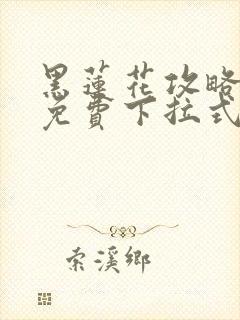 黑蓮花攻略
免費下拉式
索溪鄉